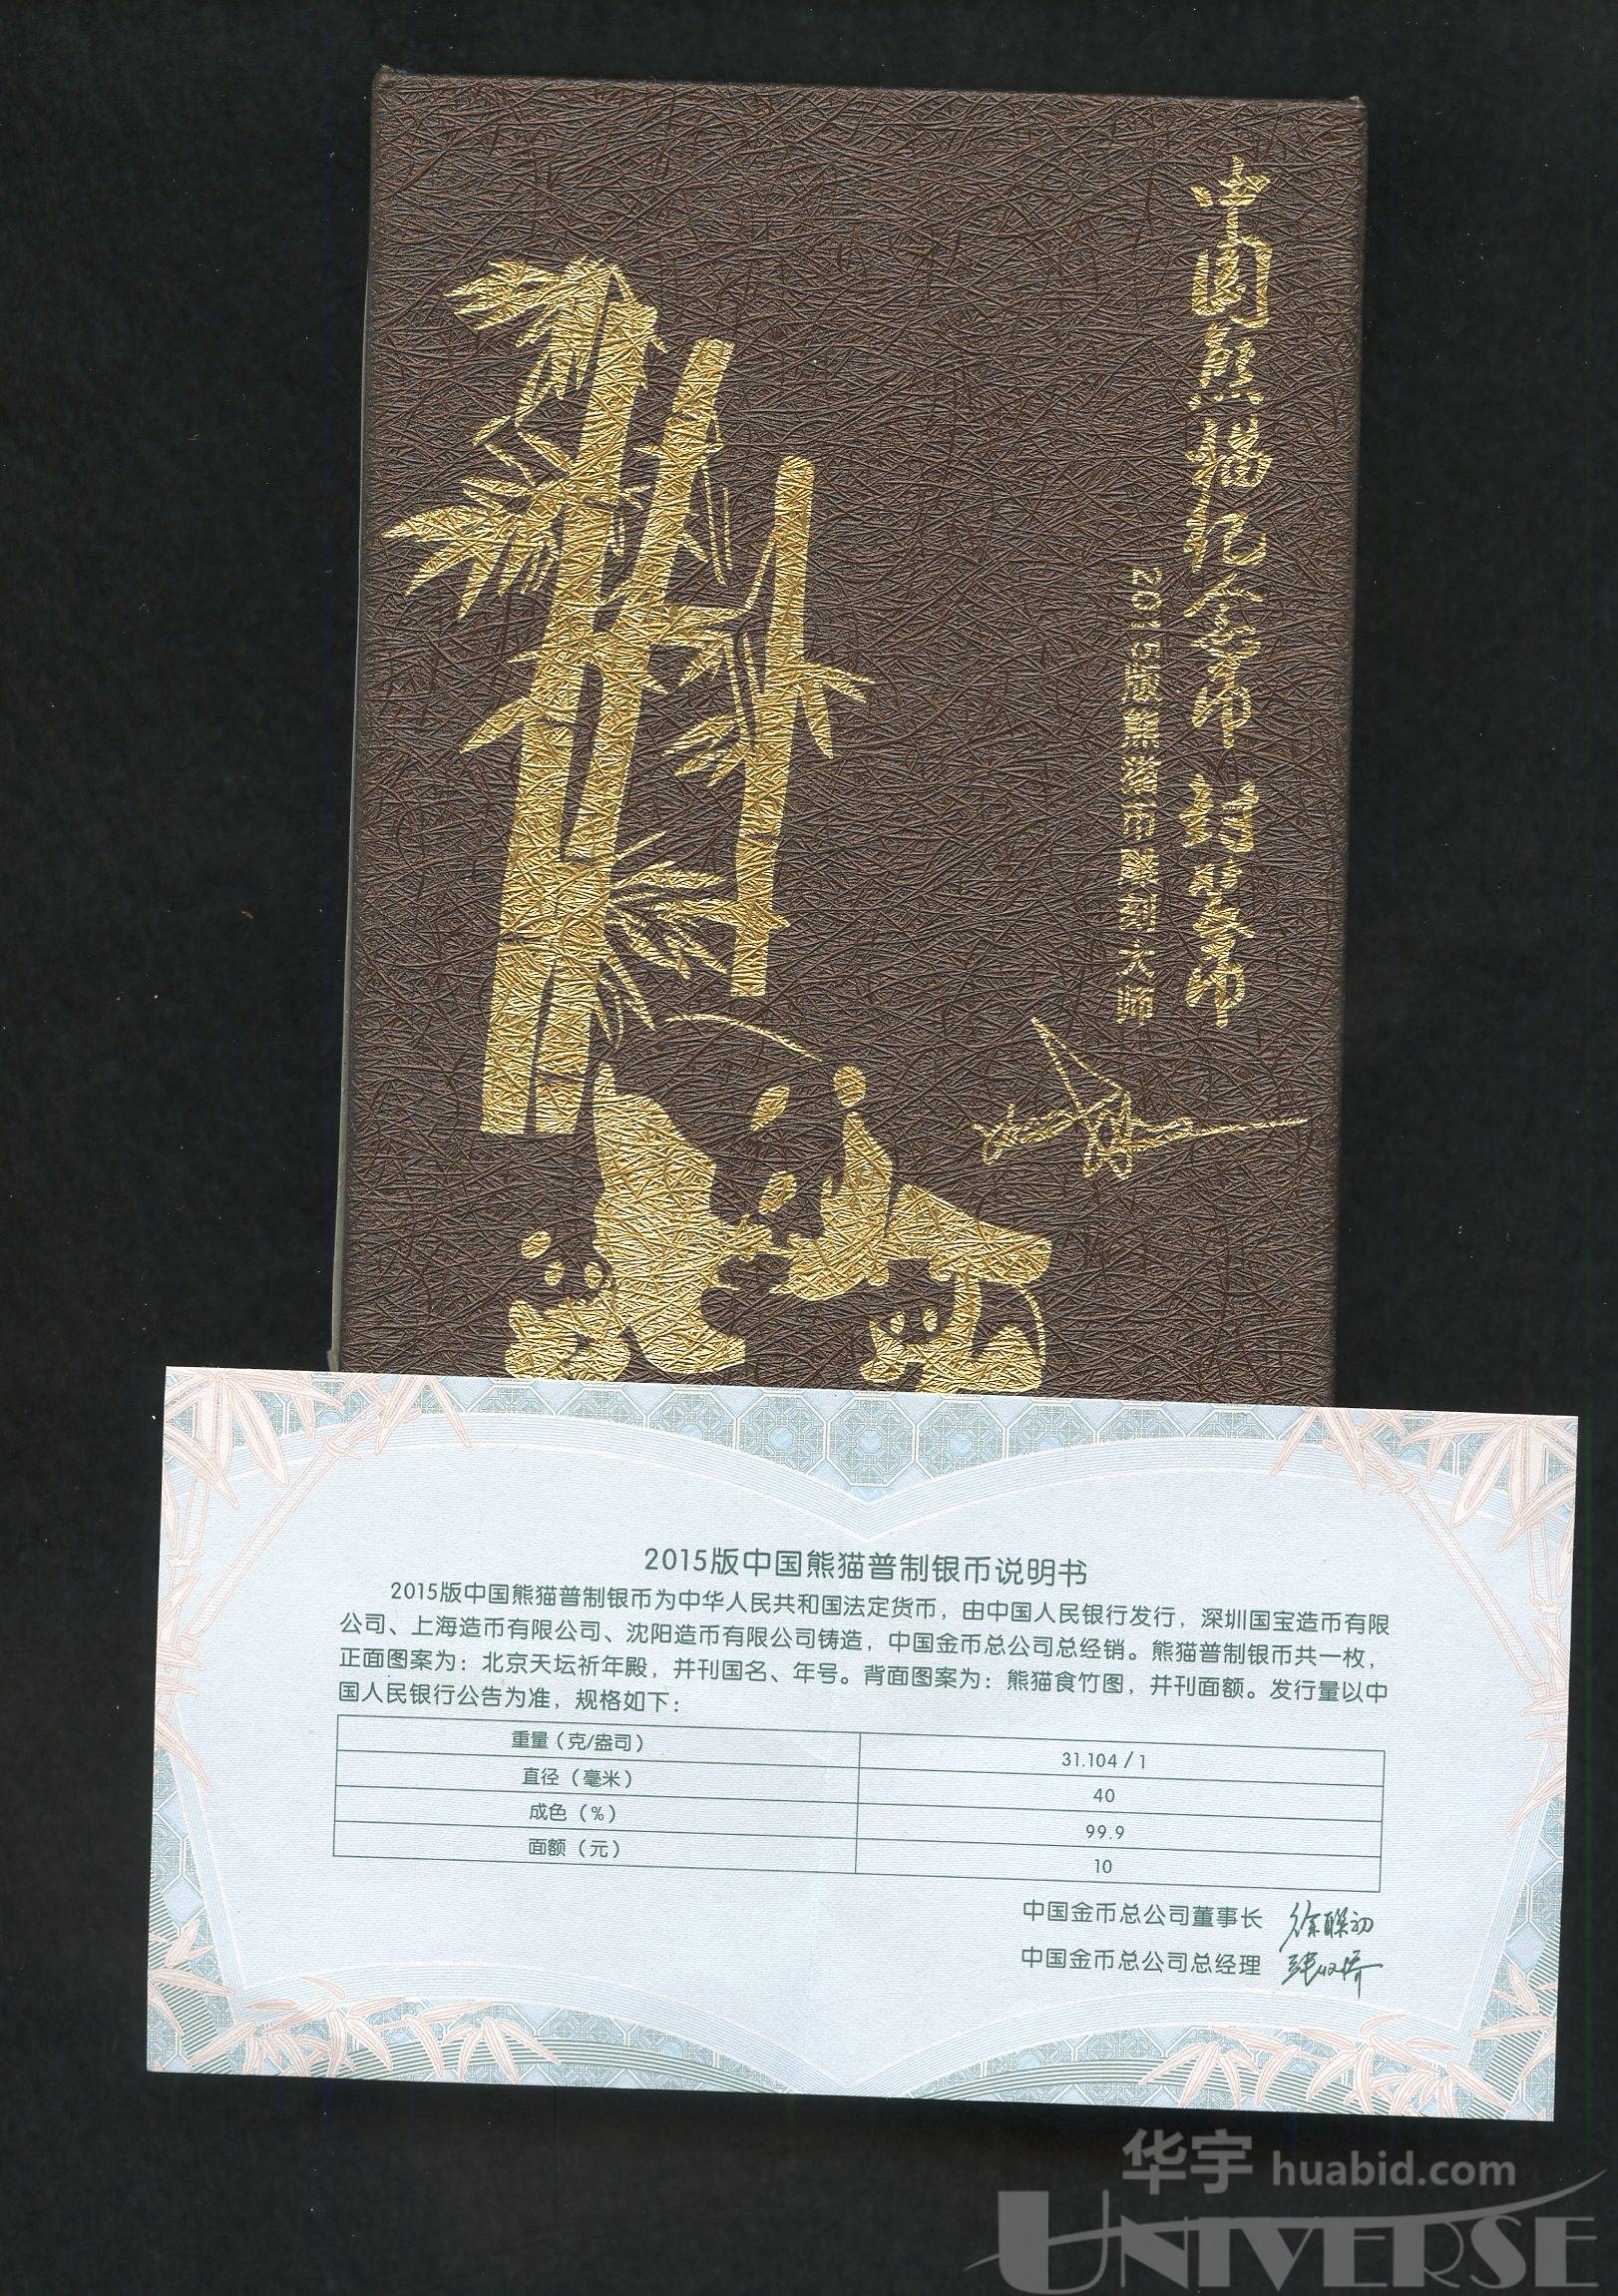 中国熊猫纪念币 封装币
2015版熊猫币雕刻大师
2015版中国熊猫普制银币说明书
2015版中国熊猫普制银币为中华人民共和国法定货币，由中国人民银行发行，深圳国宝造币有限
公司、上海造币有限公司、沈阳造币有限公司铸造，中国金币总公司总经销。熊猫普制银币共一枚，
正面图案为：北京天坛祈年殿，并刊国名、年号。背面图案为：熊猫食竹图，并刊面额。发行量以中
国人民银行公告为准，规格如下：
重量（克/盎司） 31.104 / 1
直径（毫米） 40
成色（%） 99.9
面额（元） 10
中国金币总公司董事长 徐联初
中国金币总公司总经理
华宇 huabid.com
UNIVERSE